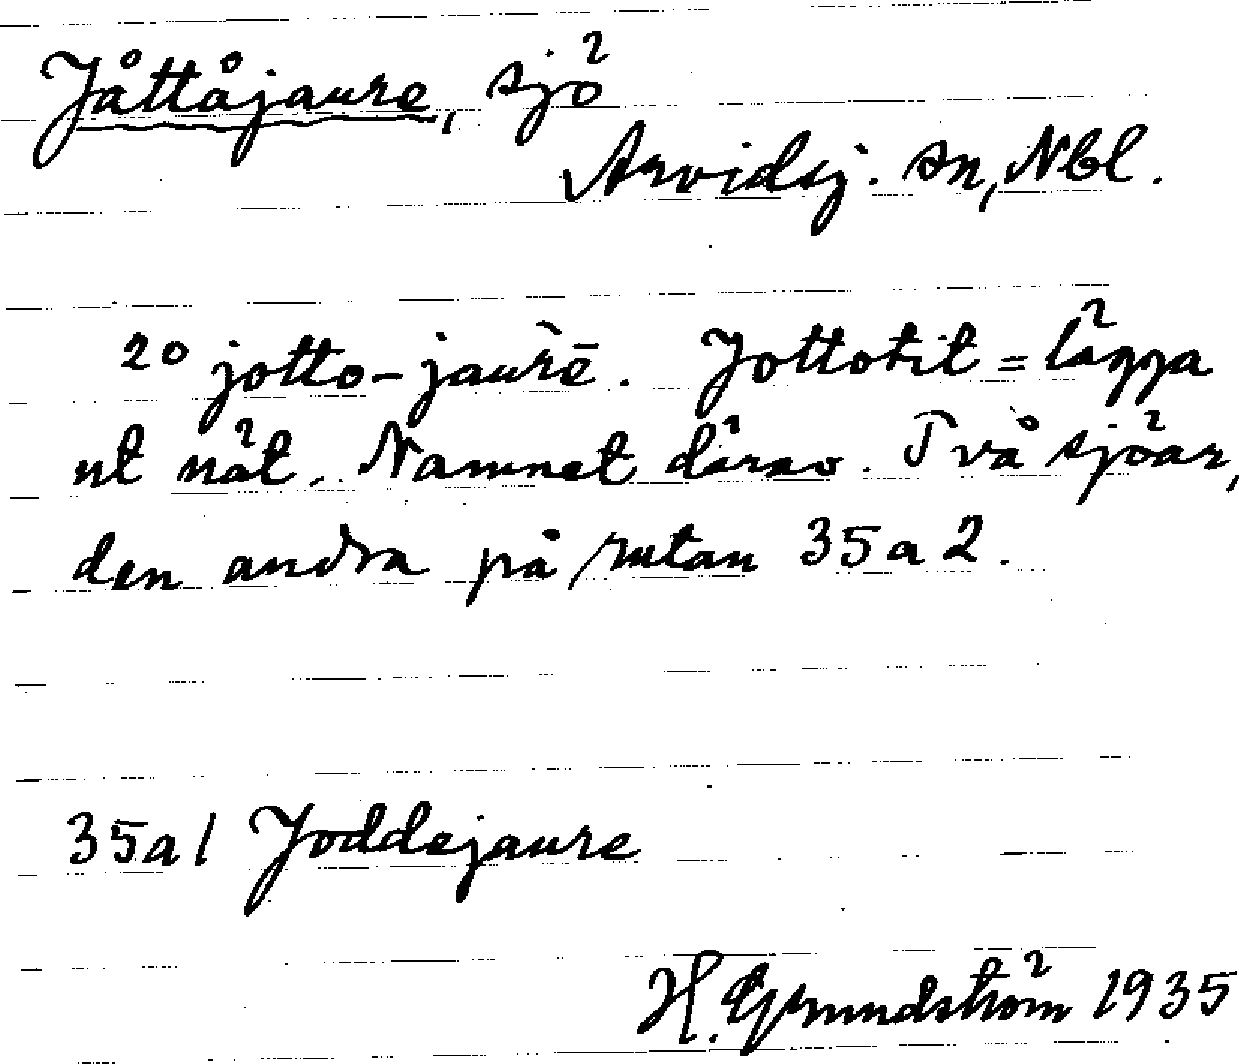 Jåttåjaure, sjö
Arvidsj. sn, Nbl.
2º jotto-jaùrē. Jottotit = lägga
ut nät. Namnet därav. Två sjöar,
den andra på rutan 35a2.
35a1 Joddejaure
H. Grundström 1935